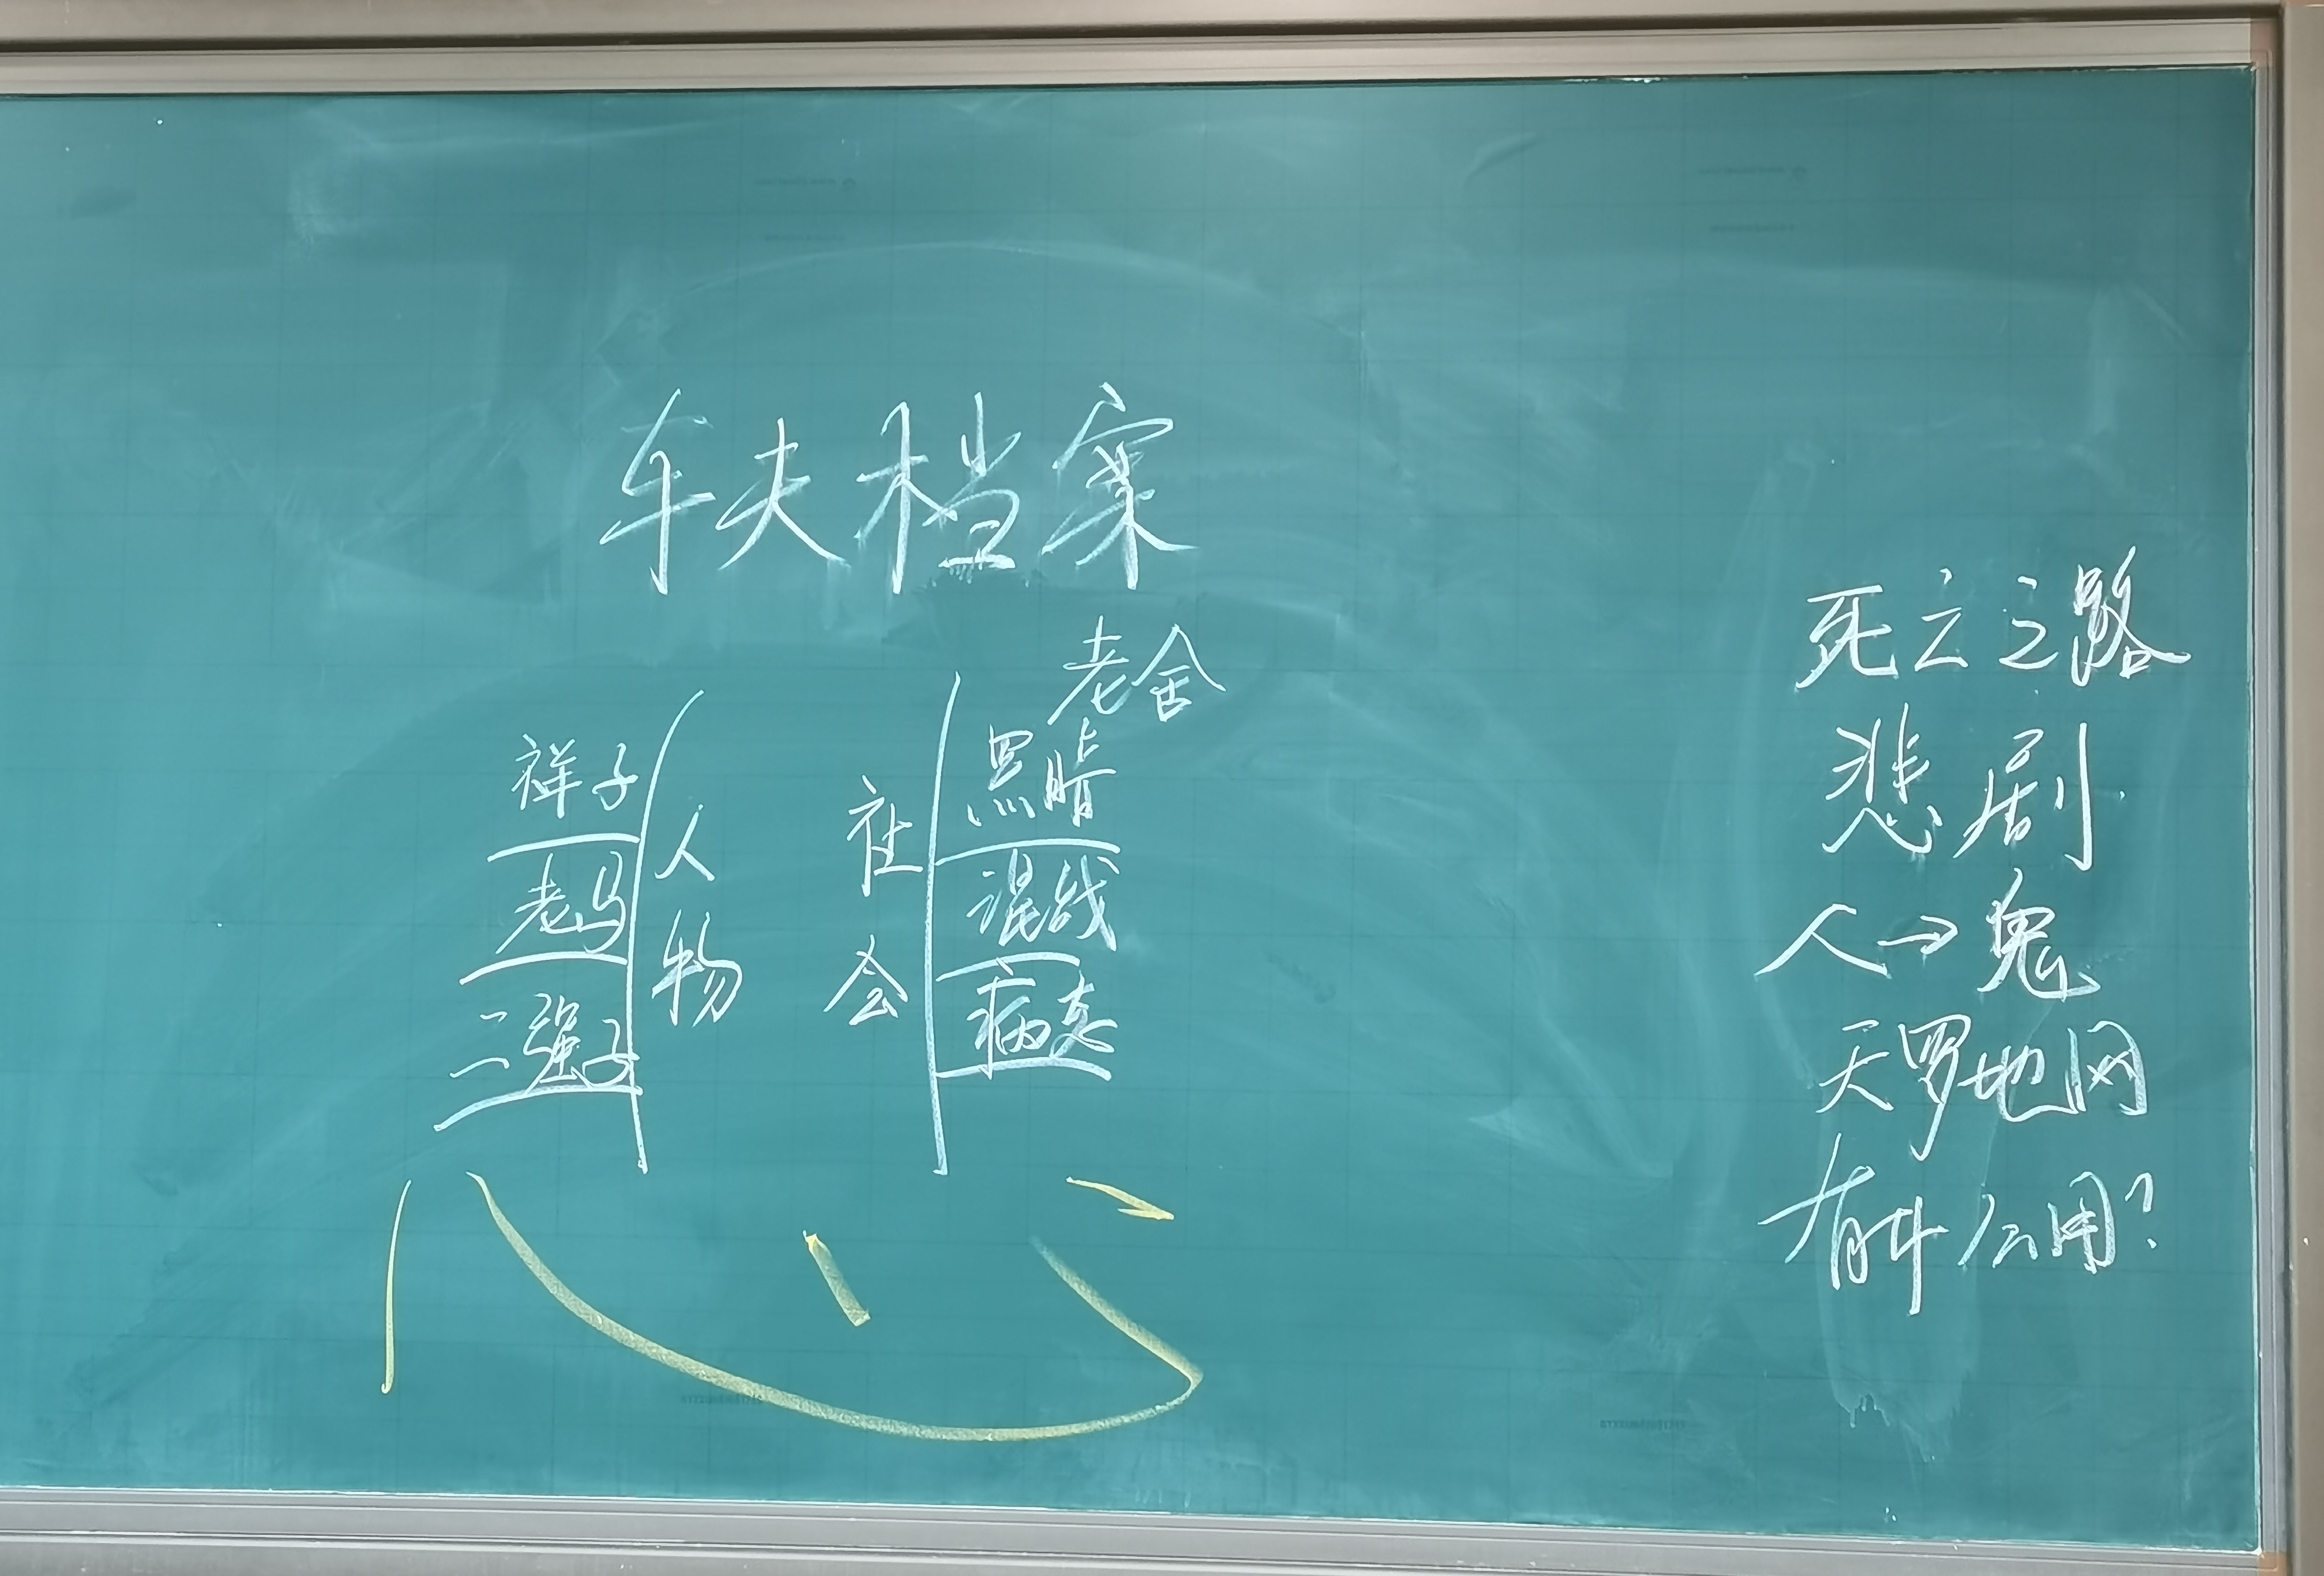 车夫档案
老舍
祥子
老马
二强子
人物
社会
黑暗
混战
病态
死亡之路
悲剧
人→鬼
天罗地网
有什么用?